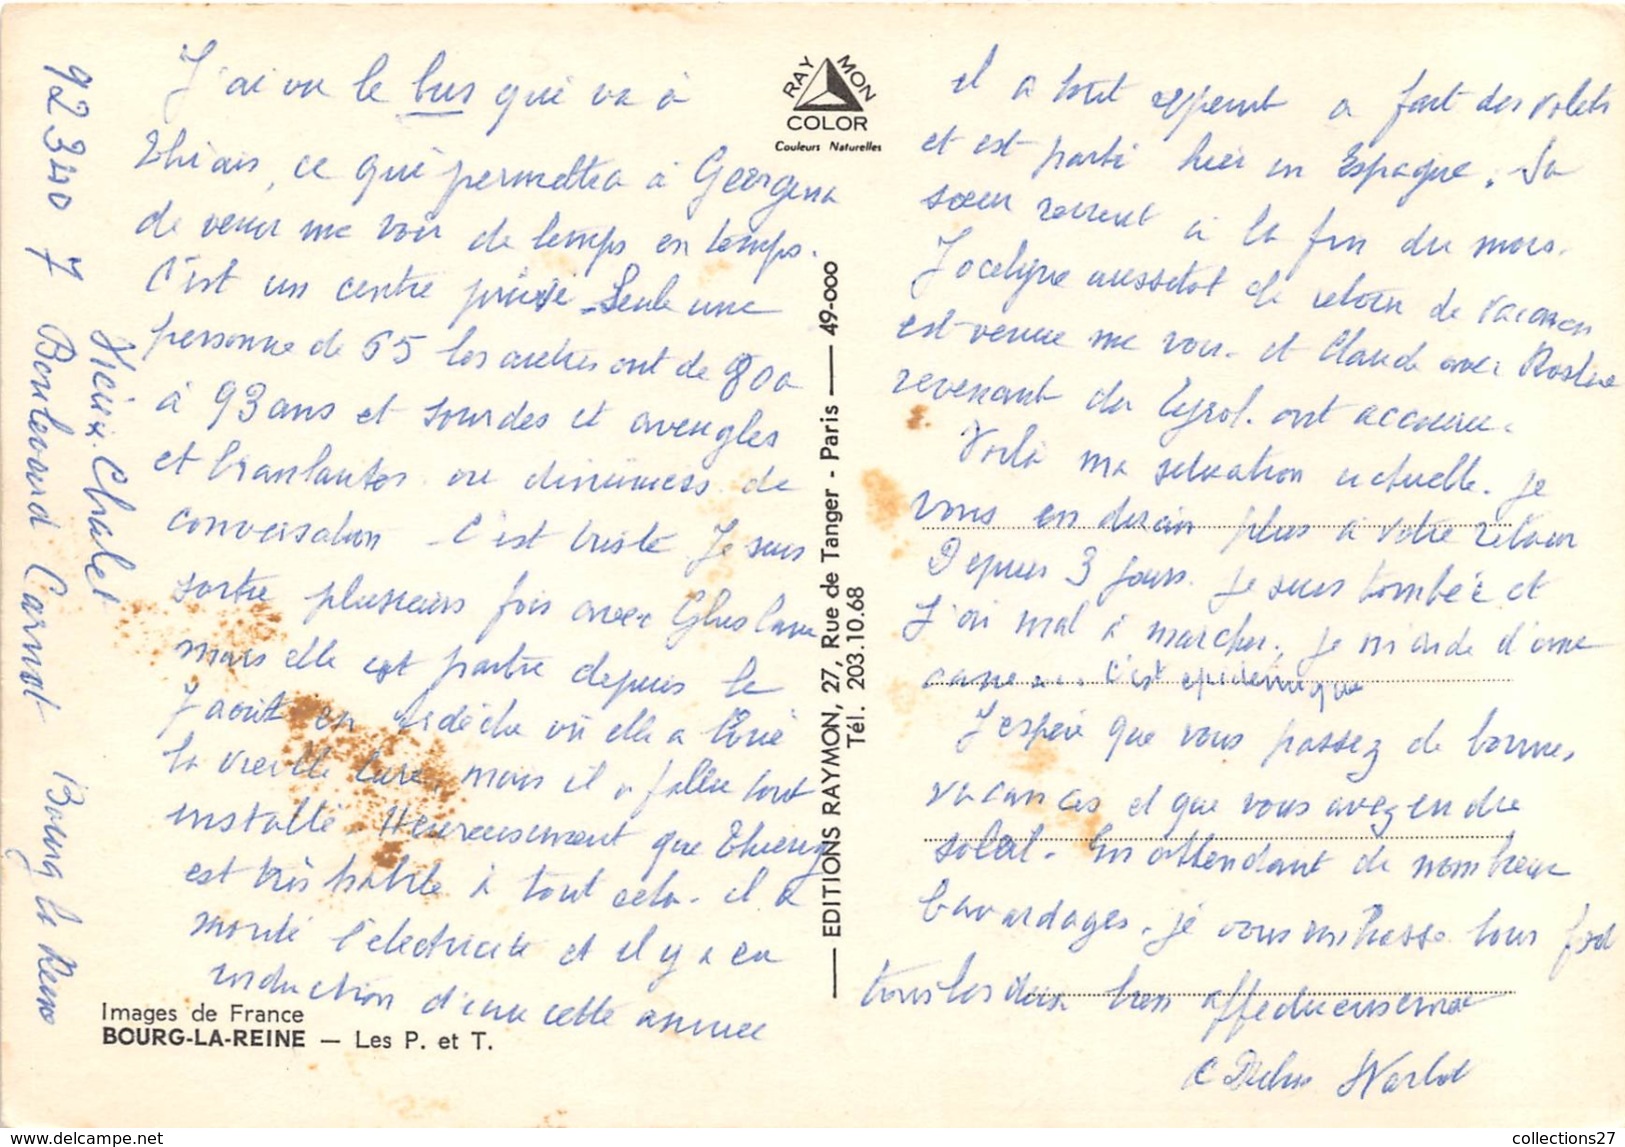 J'ai vu le bus qui va à
Thiais, ce qui permettra à Georgena
de venir me voir de temps en temps.
C'est un centre privé - Seule une
personne de 65 les autres ont de 80 a
à 93 ans et sourdes et aveugles
et tremblantes ou diminuées de
conversation - C'est triste Je suis
sortie plusieurs fois avec Ghislaine
mais elle est partie depuis le
7 aout en Ardèche où elle a loué
la vieille cure, mais il a fallu tout
installé - Heureusement que Thierry
est très habile à tout cela. il a
monté l'électricité et il y a eu
induction d'eau cette année
RAYMON
COLOR
Couleurs Naturelles
EDITIONS RAYMON, 27, Rue de Tanger - Paris — 49-000
Tél. 203.10.68
il a tout repeint a fait des volets
et est parti hier en Espagne. Sa
sœur revient à la fin du mois.
Jocelyne aussitot de retour de vacances
est venue me voir. et Claude avec
revenant du Tyrol. ont accouru.
Voilà ma situation actuelle. Je
vous en dirai plus à votre retour
Depuis 3 jours. Je suis tombée et
J'ai mal à marcher. Je m'aide d'une
canne... c'est epidemique
J'espère que vous passez de bonnes
vacances et que vous avez eu du
soleil. En attendant de nombreux
bavardages. Je vous embrasse tous
tous les deux bien affectueusement
Vieux Chalet
7 Boulevard Carnot Bourg la Reine
92340
Images de France
BOURG-LA-REINE — Les P. et T.
collections27
www.delcampe.net